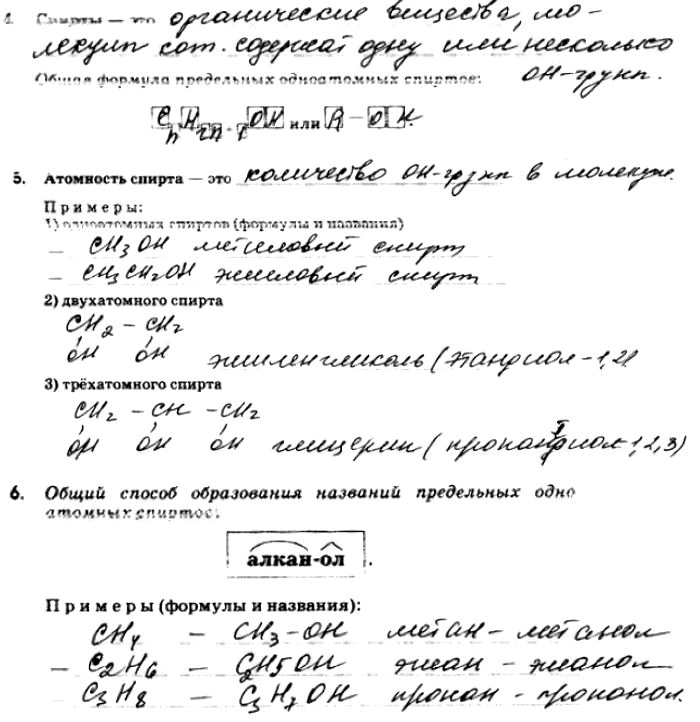 4. Спирты — это органические вещества, мо-
лекулы кот. содержат одну или несколько
Общая формула предельных одноатомных спиртов: ОН-групп.
CnH2n+1OH или R - OH.
5. Атомность спирта — это количество ОН-групп в молекуле.
Примеры:
1) одноатомных спиртов (формулы и названия)
— CH3OH метиловый спирт
— CH3CH2OH этиловый спирт
2) двухатомного спирта
CH2 - CH2
OH OH этиленгликоль (этандиол-1,2)
3) трёхатомного спирта
CH2 - CH - CH2
OH OH OH глицерин (пропантриол-1,2,3)
6. Общий способ образования названий предельных одно
атомных спиртов:
алкан-ол .
Примеры (формулы и названия):
CH4 — CH3-OH метан - метанол
— C2H6 — C2H5OH этан - этанол
— C3H8 — C3H7OH пропан - пропанол.